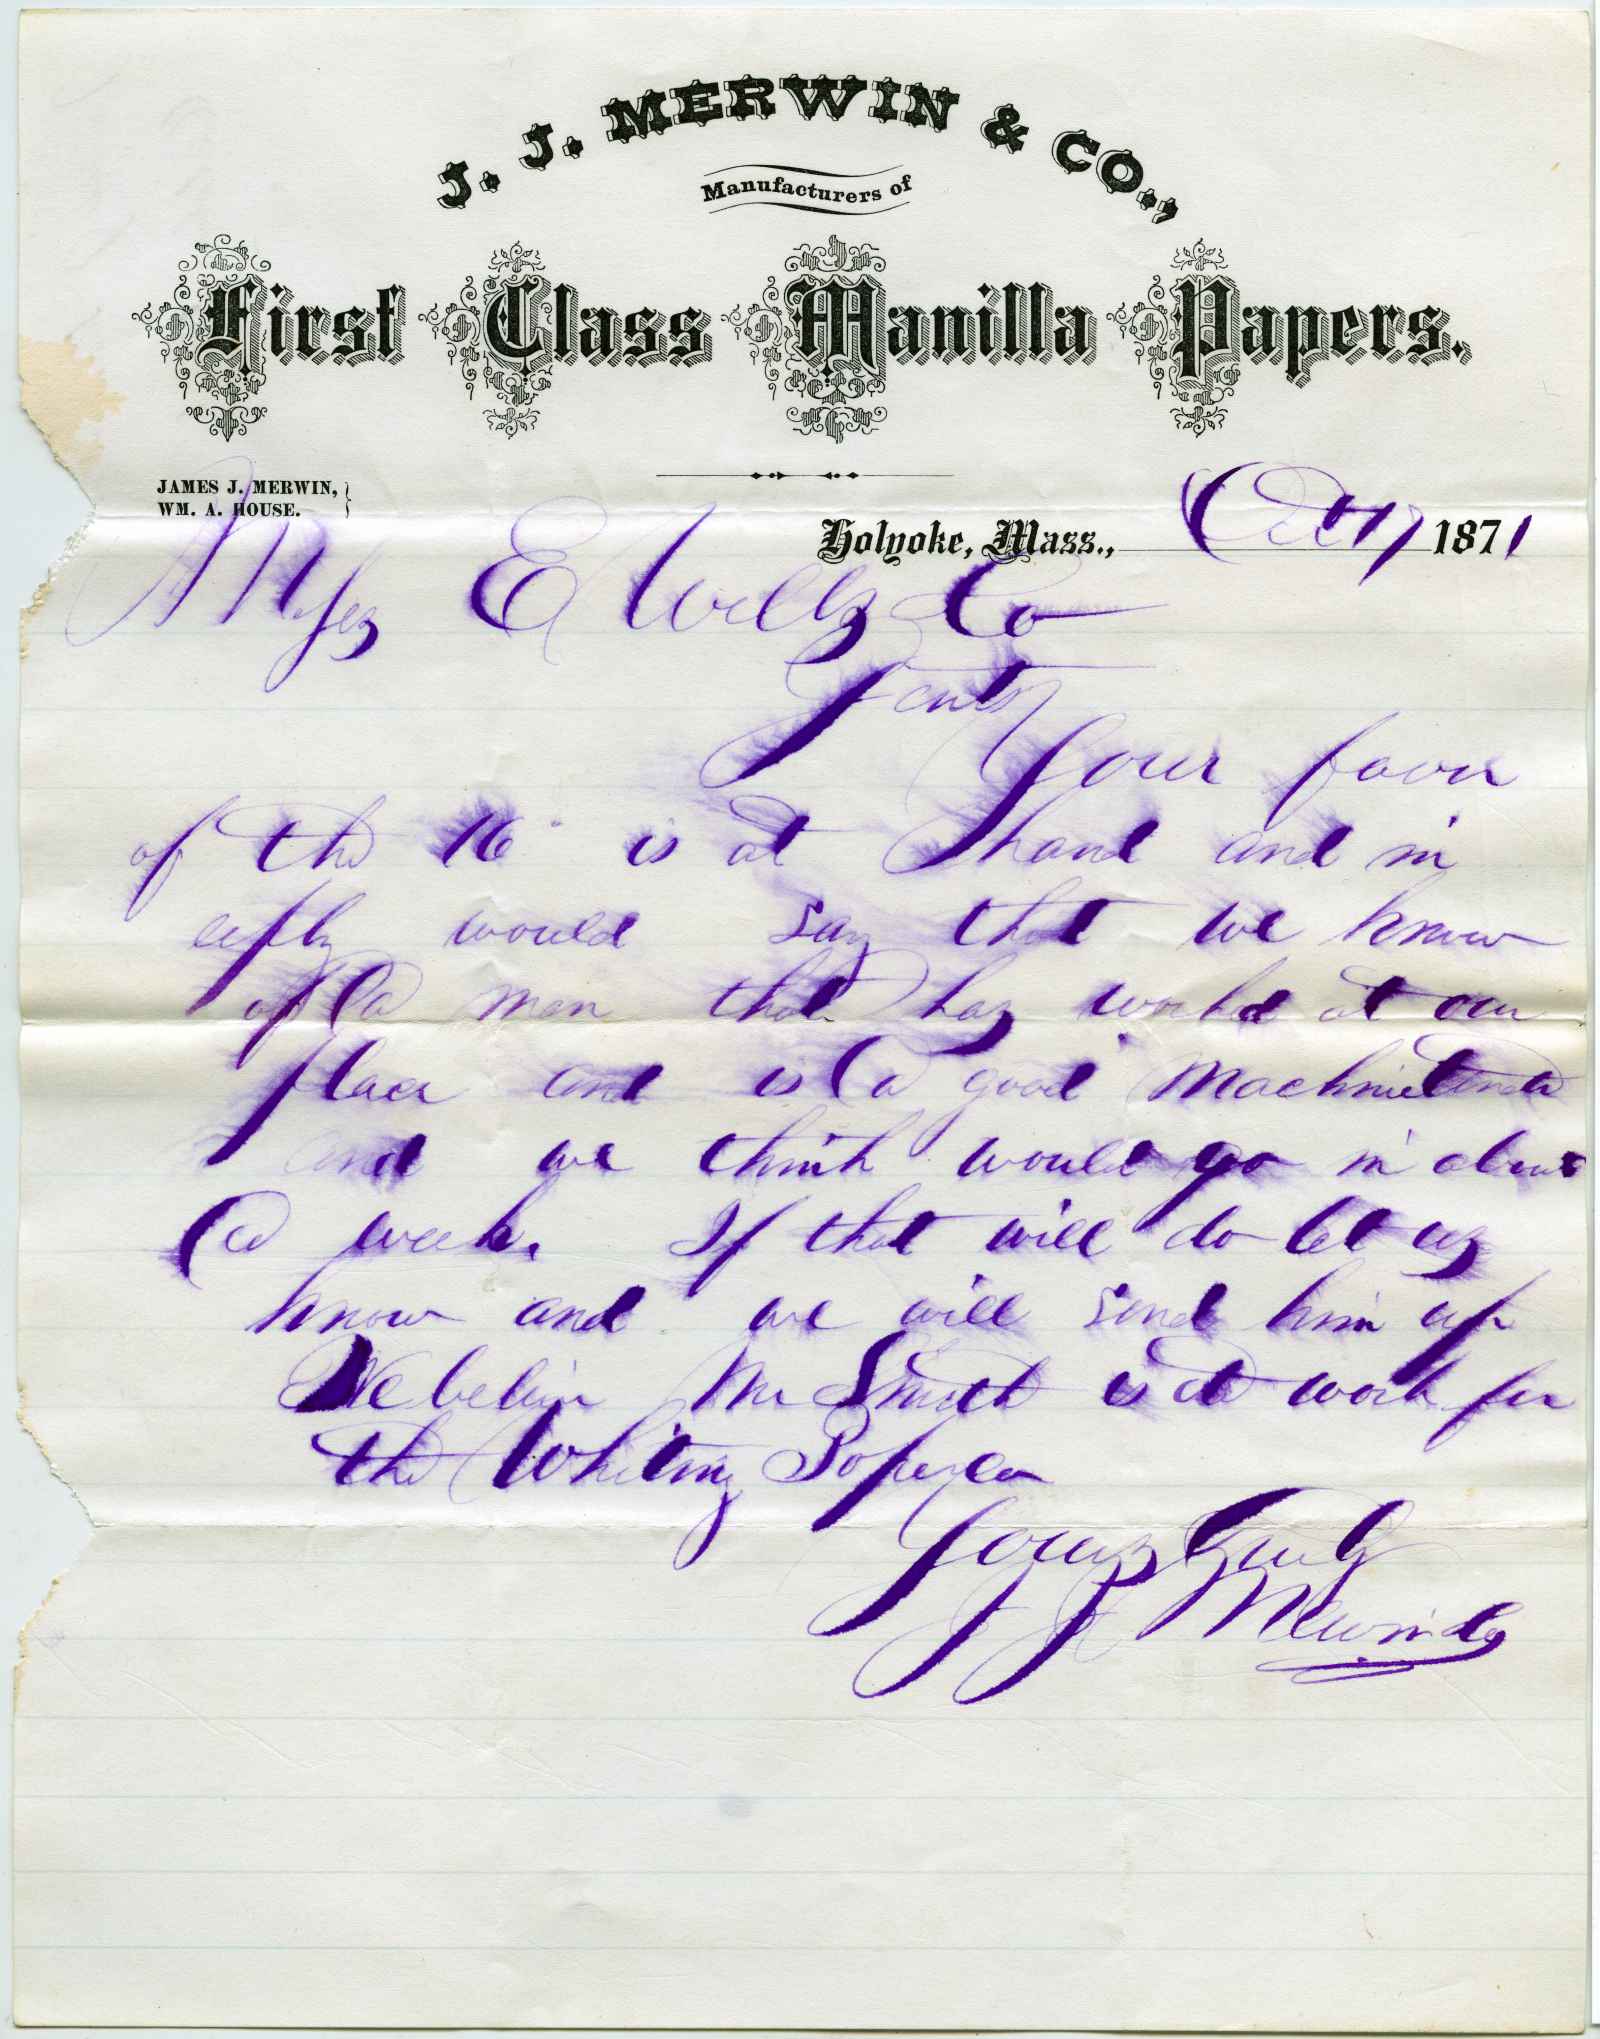 J. J. MERWIN & CO.,
Manufacturers of
First Class Manilla Papers.
JAMES J. MERWIN,
WM. A. HOUSE.
Holyoke, Mass., Oct 17 1871
E Wells & Co
Gents
Your favor
of the 16" is at hand and in
reply would say that we know
of a man that has worked at our
place and is a good Machine tender
and we think would go in about
a week. If that will do let us
know and we will send him up
We believe Mr Smith is at work for
the Whiting Paper Co
Yours Truly
J J Merwin & Co